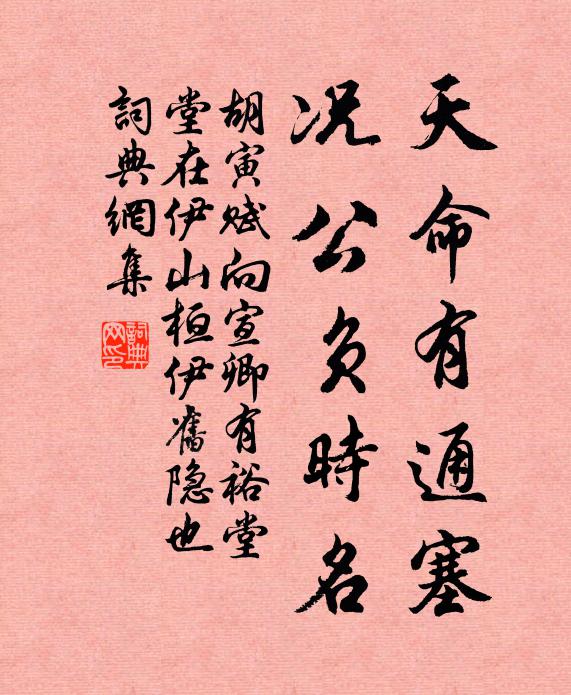 天命有通塞
况公負時名
胡寅賦向宣卿有裕堂
堂在伊山桓伊舊隐也
詞典網集
詞典网印